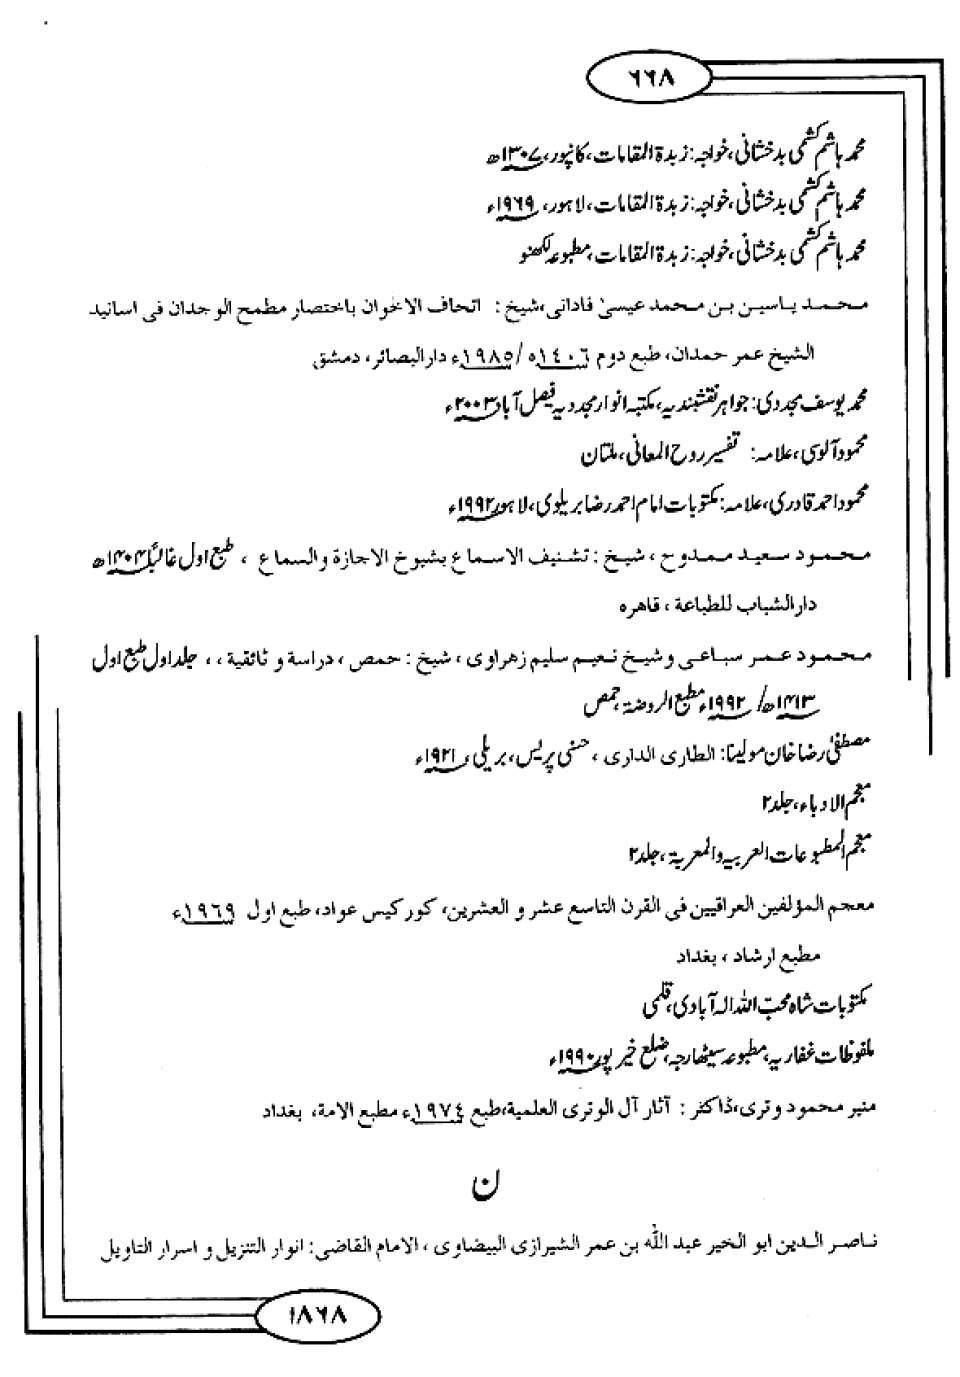 ۶۶۸
محمد ہاشم کشمی بدخشانی، خواجہ: زبدۃ المقامات، کانپور، ۱۳۰۷ھ
محمد ہاشم کشمی بدخشانی، خواجہ: زبدۃ المقامات، لاہور، ۱۹۶۹ء
محمد ہاشم کشمی بدخشانی، خواجہ: زبدۃ المقامات، مطبوعہ لکھنو
محمد یاسین بن محمد عیسیٰ فادانی، شیخ: اتحاف الاخوان باختصار مطمح الوجدان فی اسانید
الشیخ عمر حمدان، طبع دوم ١٤٠٦ھ/ ١٩٨٥ء دارالبصائر، دمشق
محمد یوسف مجددی: جواہر نقشبندیہ، مکتبہ انوار مجددیہ فیصل آباد ۲۰۰۳ء
محمود آلوسی، علامہ: تفسیر روح المعانی، ملتان
محمود احمد قادری، علامہ: مکتوبات امام احمد رضا بریلوی، لاہور ۱۹۹۲ء
محمود سعید ممدوح، شیخ: تشنیف الاسماع بشیوخ الاجازة والسماع، طبع اول غالباً ۱۴۰۴ھ
دارالشباب للطباعة، قاهره
محمود عمر سباعی و شیخ نعیم سلیم زهراوی، شیخ: حمص، دراسة وثائقیة،، جلد اول طبع اول
۱۴۱۳ھ/ ۱۹۹۲ء مطبع الروضۃ، حمص
مصطفیٰ رضا خان مولینا: الطاری الداری، حسنی پریس، بریلی ۱۹۲۱ء
معجم الادباء، جلد۲
معجم المطبوعات العربیہ والمعربۃ، جلد۲
معجم المؤلفین العراقیین فی القرن التاسع عشر و العشرین، کورکیس عواد، طبع اول ١٩٦٩ء
مطبع ارشاد، بغداد
مکتوبات شاہ محبّ اللہ الہ آبادی، قلمی
ملفوظات غفاریہ، مطبوعہ سیٹھارجہ، ضلع خیر پور ۱۹۹۰ء
منیر محمود وتری، ڈاکٹر: آثار آل الوتری العلمیة، طبع ١٩٧٤ء مطبع الامة، بغداد
ن
ناصر الدین ابو الخیر عبد الله بن عمر الشیرازی البیضاوی، الامام القاضی: انوار التنزیل و اسرار التاویل
۱۸۶۸